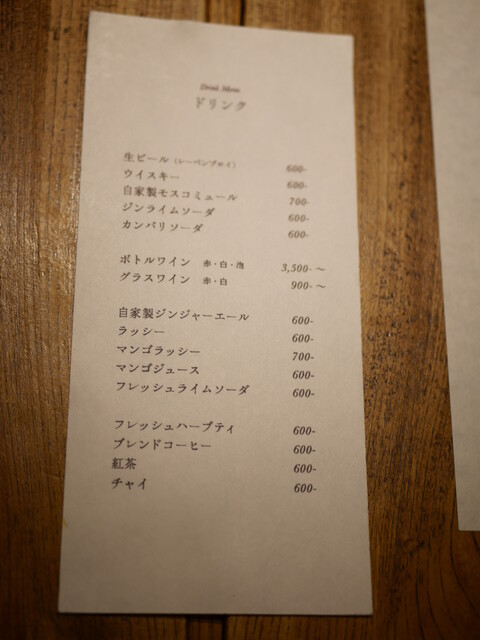 Drink Menu
ドリンク
生ビール（レーベンブロイ） 600-
ウイスキー 600-
自家製モスコミュール 700-
ジンライムソーダ 600-
カンパリソーダ 600-
ボトルワイン 赤・白・泡 3,500-～
グラスワイン 赤・白 900-～
自家製ジンジャーエール 600-
ラッシー 600-
マンゴラッシー 700-
マンゴジュース 600-
フレッシュライムソーダ 600-
フレッシュハーブティ 600-
ブレンドコーヒー 600-
紅茶 600-
チャイ 600-